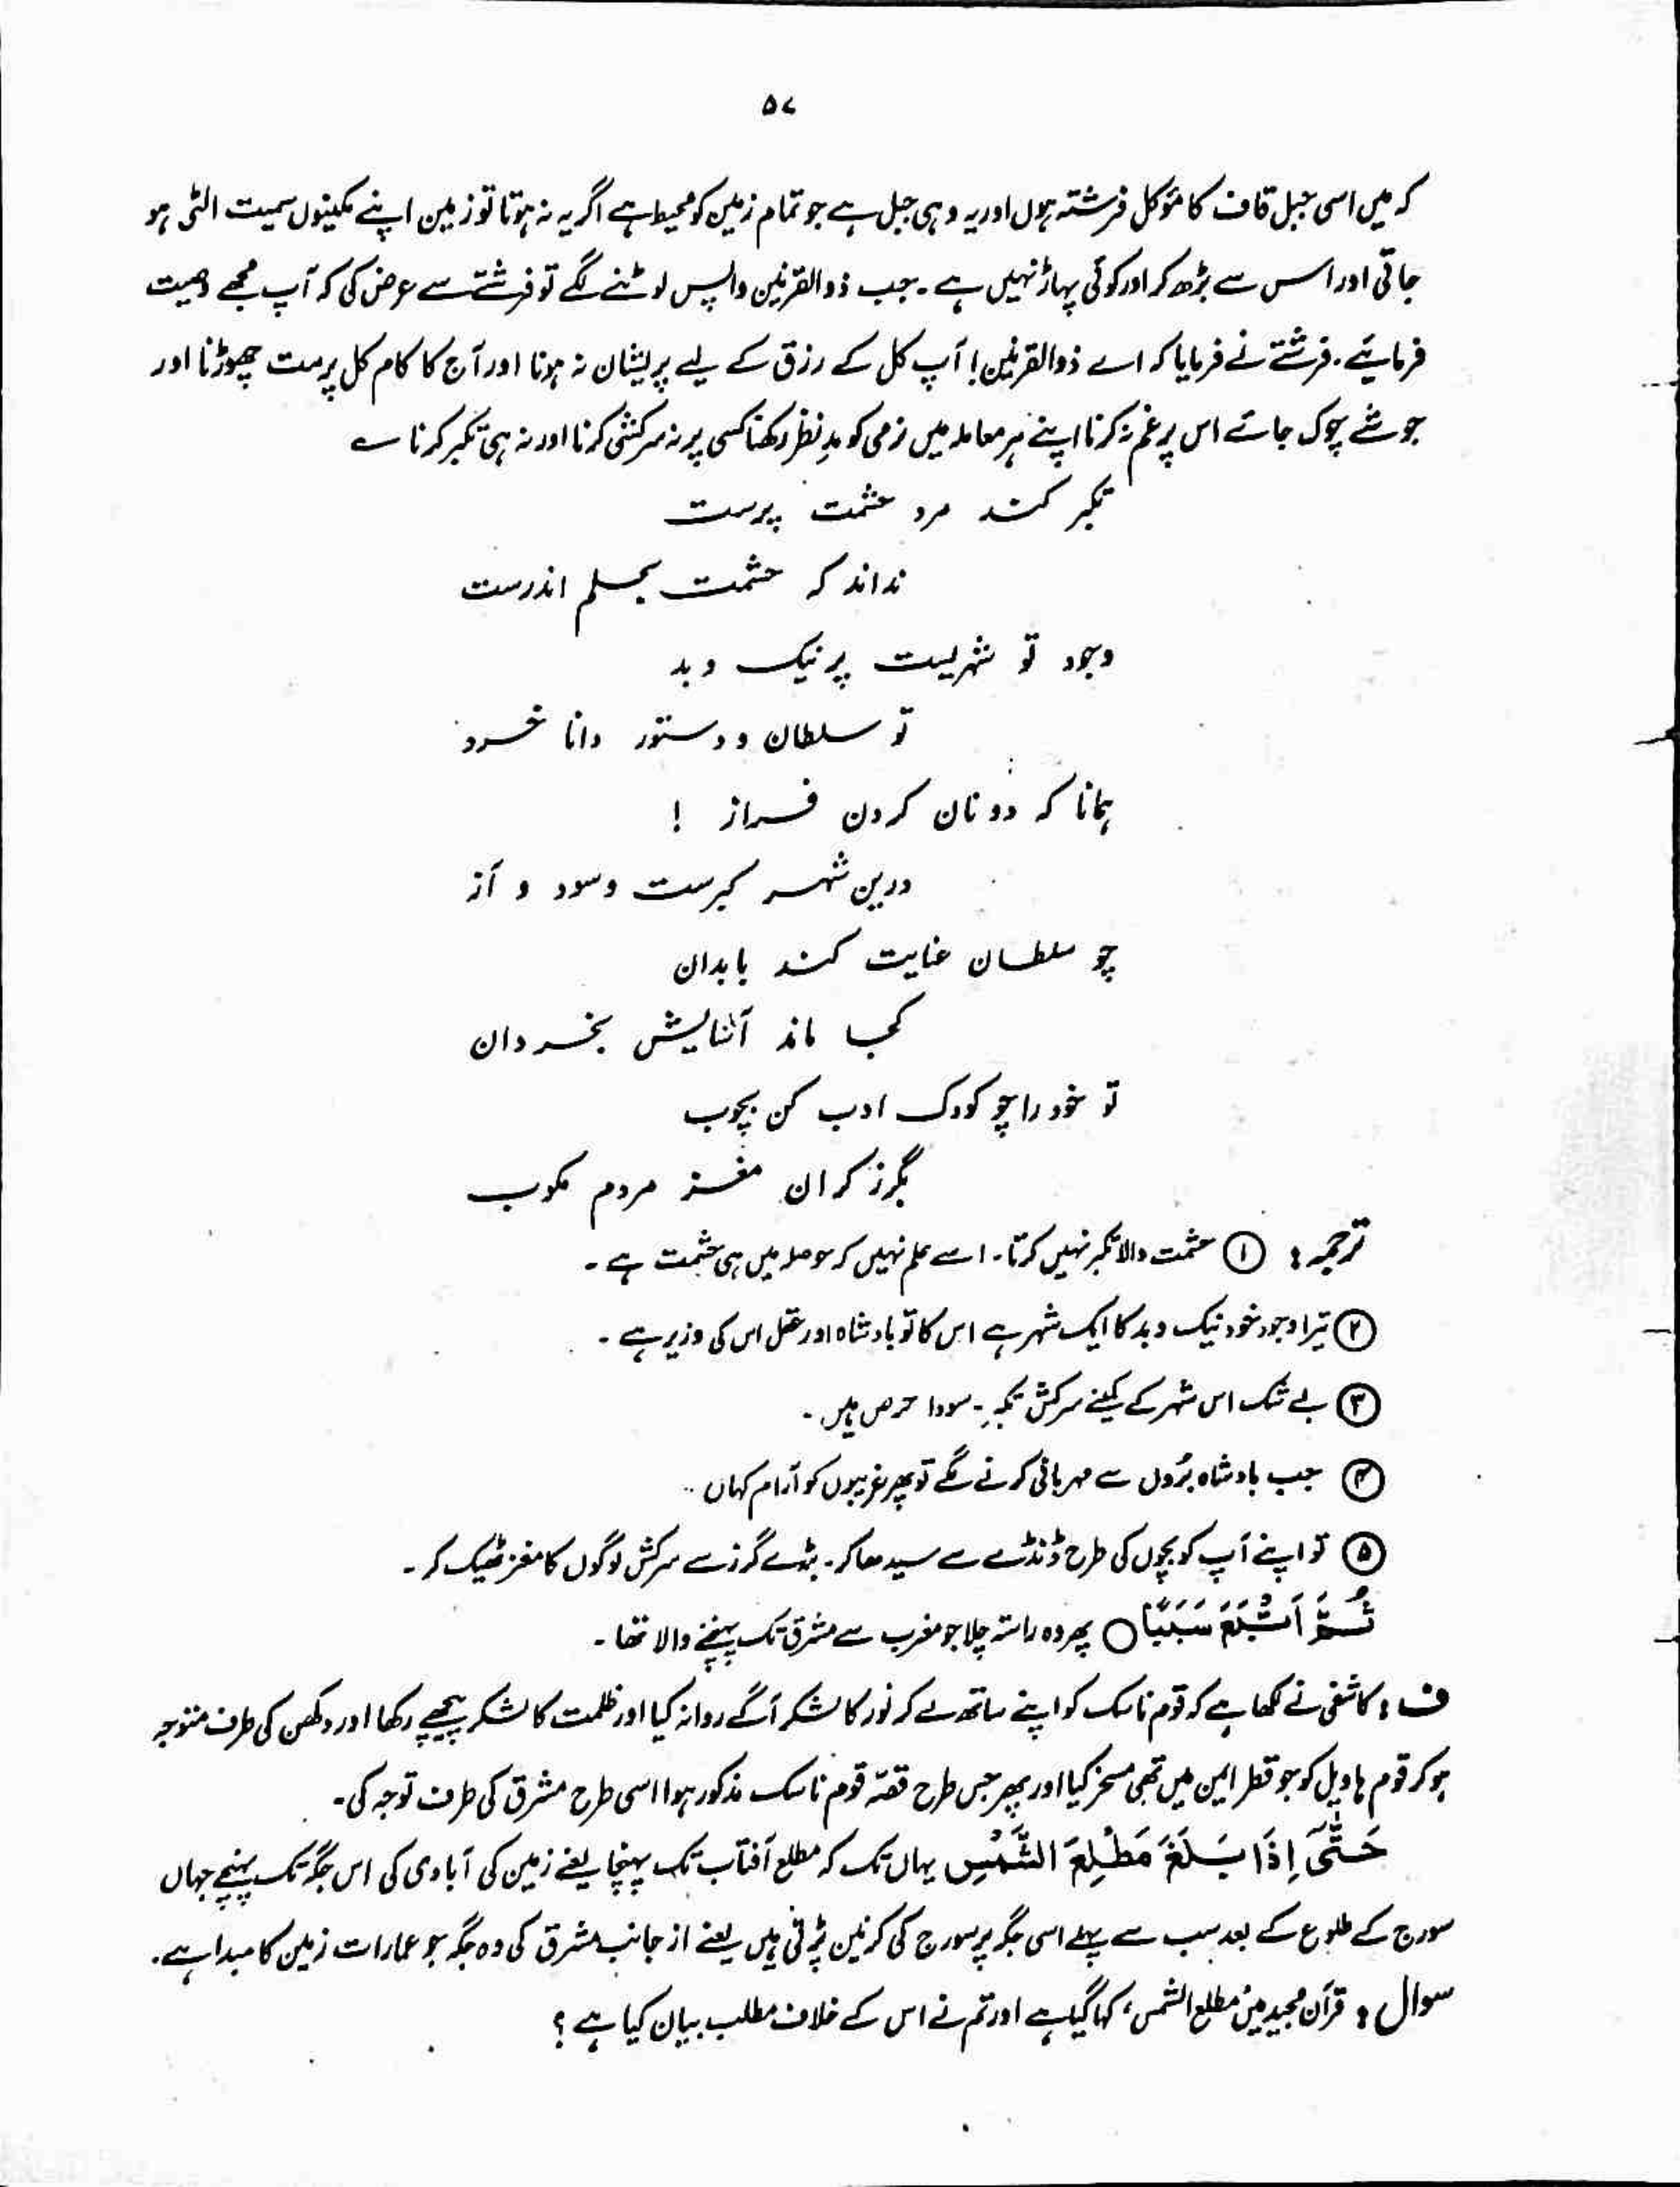 ۵۷
کہ میں اسی جبل قاف کا مؤکل فرشتہ ہوں اور یہ وہی جبل ہے جو تمام زمین کو محیط ہے اگر یہ نہ ہوتا تو زمین اپنے مکینوں سمیت الٹی ہو
جاتی اور اس سے بڑھ کر اور کوئی پہاڑ نہیں ہے۔ جب ذوالقرنین واپس لوٹنے لگے تو فرشتے سے عرض کی کہ آپ مجھے وصیت
فرمایئے۔ فرشتے نے فرمایا کہ اے ذوالقرنین! آپ کل کے رزق کے لیے پریشان نہ ہونا اور آج کا کام کل پر مت چھوڑنا اور
جو شے چوک جائے اس پر غم نہ کرنا اپنے ہر معاملہ میں نرمی کو مدِ نظر رکھنا کسی پر نہ سرکشی کرنا اور نہ ہی تکبر کرنا ؎
تکبر کند مرد حشمت پرست
نداند کہ حشمت بحلم اندرست
وجود تو شہریست پر نیک و بد
تو سلطان و دستور دانا خرد
ہمانا کہ دونان کردن فراز !
درین شہر کبرست وسود و آز
چو سلطان عنایت کند بابدان
کجا ماند آسایش بخردان
تو خود را چو کودک ادب کن بچوب
بگرز کران مغز مردم مکوب
ترجمہ : ① حشمت والا تکبر نہیں کرتا۔ اسے علم نہیں کہ حوصلہ میں ہی حشمت ہے۔
② تیرا وجود خود نیک و بد کا ایک شہر ہے اس کا تو بادشاہ اور عقل اس کی وزیر ہے۔
③ بے شک اس شہر کے کمینے سرکش تکبر۔ سودا حرص ہیں۔
④ جب بادشاہ بُروں سے مہربانی کرنے لگے تو پھر غریبوں کو آرام کہاں۔
⑤ تو اپنے آپ کو بچوں کی طرح ڈنڈے سے سیدھا کر۔ بڑے گرز سے سرکش لوگوں کا مغز ٹھیک کر۔
ثُمَّ اَتْبَعَ سَبَبًا ○ پھر وہ راستہ چلا جو مغرب سے مشرق تک پہنچنے والا تھا۔
ف : کاشفی نے لکھا ہے کہ قوم ناسک کو اپنے ساتھ لے کر نور کا لشکر آگے روانہ کیا اور ظلمت کا لشکر پیچھے رکھا اور دکھن کی طرف متوجہ
ہو کر قوم ہاویل کو جو قطر ایمن میں تھی مسخر کیا اور پھر جس طرح قصّہ قوم ناسک مذکور ہوا اسی طرح مشرق کی طرف توجہ کی۔
حَتّٰٓى اِذَا بَلَغَ مَطْلِعَ الشَّمْسِ یہاں تک کہ مطلع آفتاب تک پہنچا یعنے زمین کی آبادی کی اس جگہ تک پہنچے جہاں
سورج کے طلوع کے بعد سب سے پہلے اسی جگہ پر سورج کی کرنین پڑتی ہیں یعنے از جانب مشرق کی وہ جگہ جو عمارات زمین کا مبدا ہے۔
سوال : قرآن مجید میں مطلع الشمس، کہا گیا ہے اور تم نے اس کے خلاف مطلب بیان کیا ہے ؟